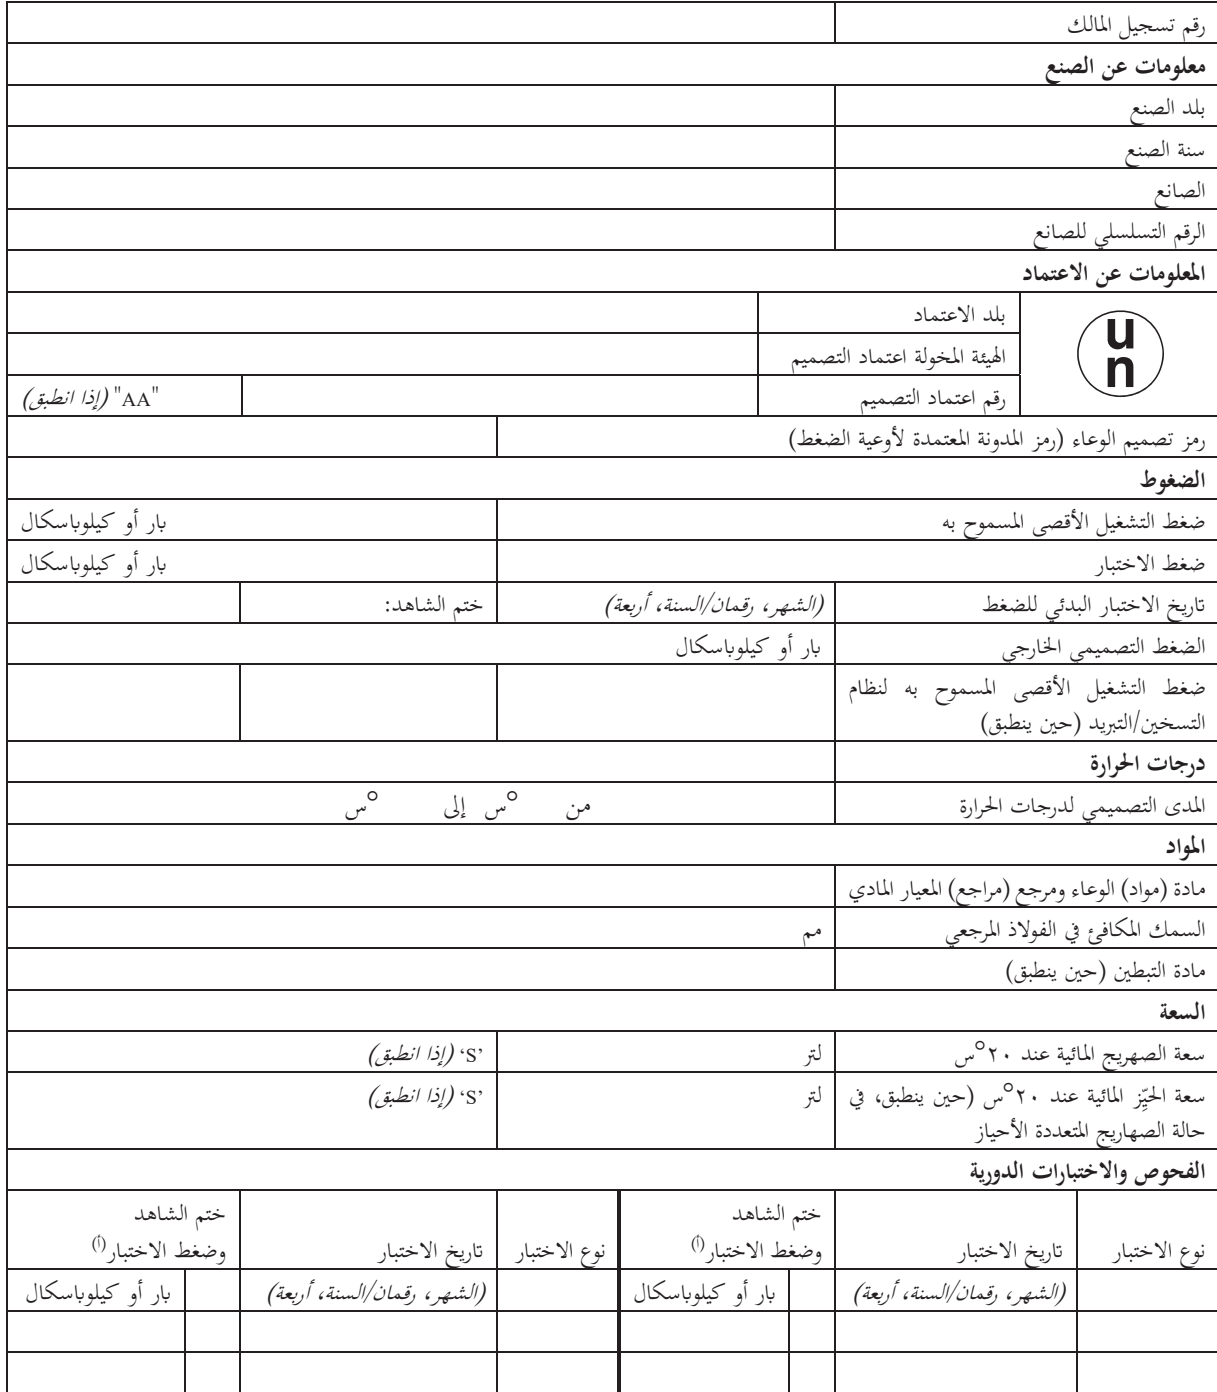 رقم تسجيل المالك
معلومات عن الصنع
بلد الصنع
سنة الصنع
الصانع
الرقم التسلسلي للصانع
المعلومات عن الاعتماد
un
بلد الاعتماد
الهيئة المخولة اعتماد التصميم
رقم اعتماد التصميم "AA" (إذا انطبق)
رمز تصميم الوعاء (رمز المدونة المعتمدة لأوعية الضغط)
الضغوط
ضغط التشغيل الأقصى المسموح به بار أو كيلوباسكال
ضغط الاختبار بار أو كيلوباسكال
تاريخ الاختبار البدئي للضغط (الشهر، رقمان/السنة، أربعة) ختم الشاهد:
الضغط التصميمي الخارجي بار أو كيلوباسكال
ضغط التشغيل الأقصى المسموح به لنظام
التسخين/التبريد (حين ينطبق)
درجات الحرارة
المدى التصميمي لدرجات الحرارة من °س إلى °س
المواد
مادة (مواد) الوعاء ومرجع (مراجع) المعيار المادي
السمك المكافئ في الفولاذ المرجعي مم
مادة التبطين (حين ينطبق)
السعة
سعة الصهريج المائية عند ٢٠°س لتر ‘S’ (إذا انطبق)
سعة الحيّز المائية عند ٢٠°س (حين ينطبق، في لتر ‘S’ (إذا انطبق)
حالة الصهاريج المتعددة الأحياز
الفحوص والاختبارات الدورية
ختم الشاهد ختم الشاهد
نوع الاختبار تاريخ الاختبار وضغط الاختبار(أ) نوع الاختبار تاريخ الاختبار وضغط الاختبار(أ)
(الشهر، رقمان/السنة، أربعة) بار أو كيلوباسكال (الشهر، رقمان/السنة، أربعة) بار أو كيلوباسكال